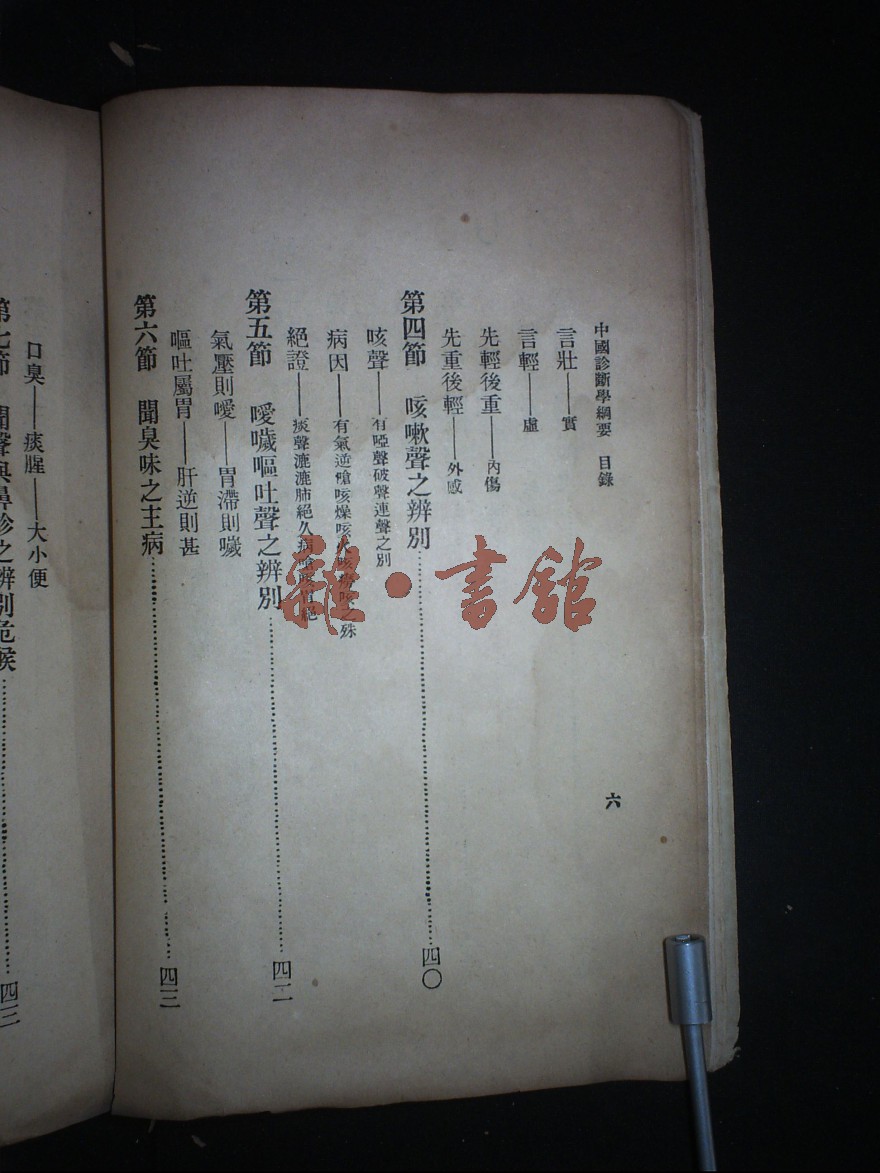 中國診斷學綱要　目錄
六
言壯——實
言輕——虛
先輕後重——內傷
先重後輕——外感
第四節　咳嗽聲之辨別……四〇
咳聲——有啞聲破聲連聲之別
病因——有氣逆嗆咳燥咳火咳癆咳之殊
絕證——痰聲漉漉肺絕久病嗆咳胃絕
第五節　噯噦嘔吐聲之辨別……四二
氣壅則噯——胃滯則噦
嘔吐屬胃——肝逆則甚
第六節　聞臭味之主病……四三
口臭——痰腥——大小便
第七節　聞聲與鼻診之辨別危候……四三
雜·書館